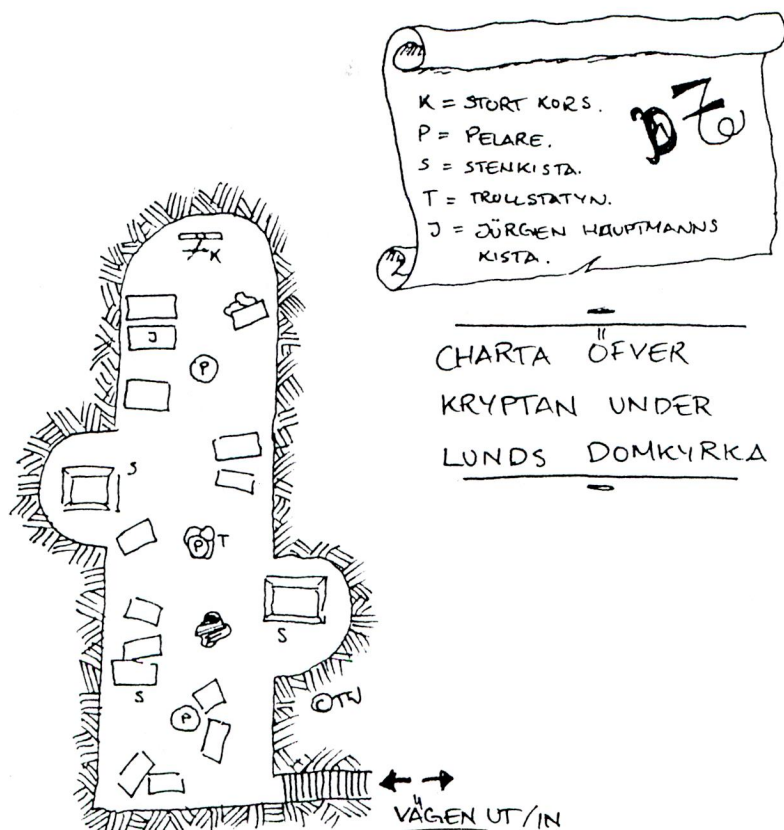 K = STORT KORS.
P = PELARE.
S = STENKISTA.
T = TROLLSTATYN.
J = JÜRGEN HAUPTMANNS
KISTA.
CHARTA ÖFVER
KRYPTAN UNDER
LUNDS DOMKYRKA
K
J
P
S
P T
S
S
P
VÄGEN UT/IN